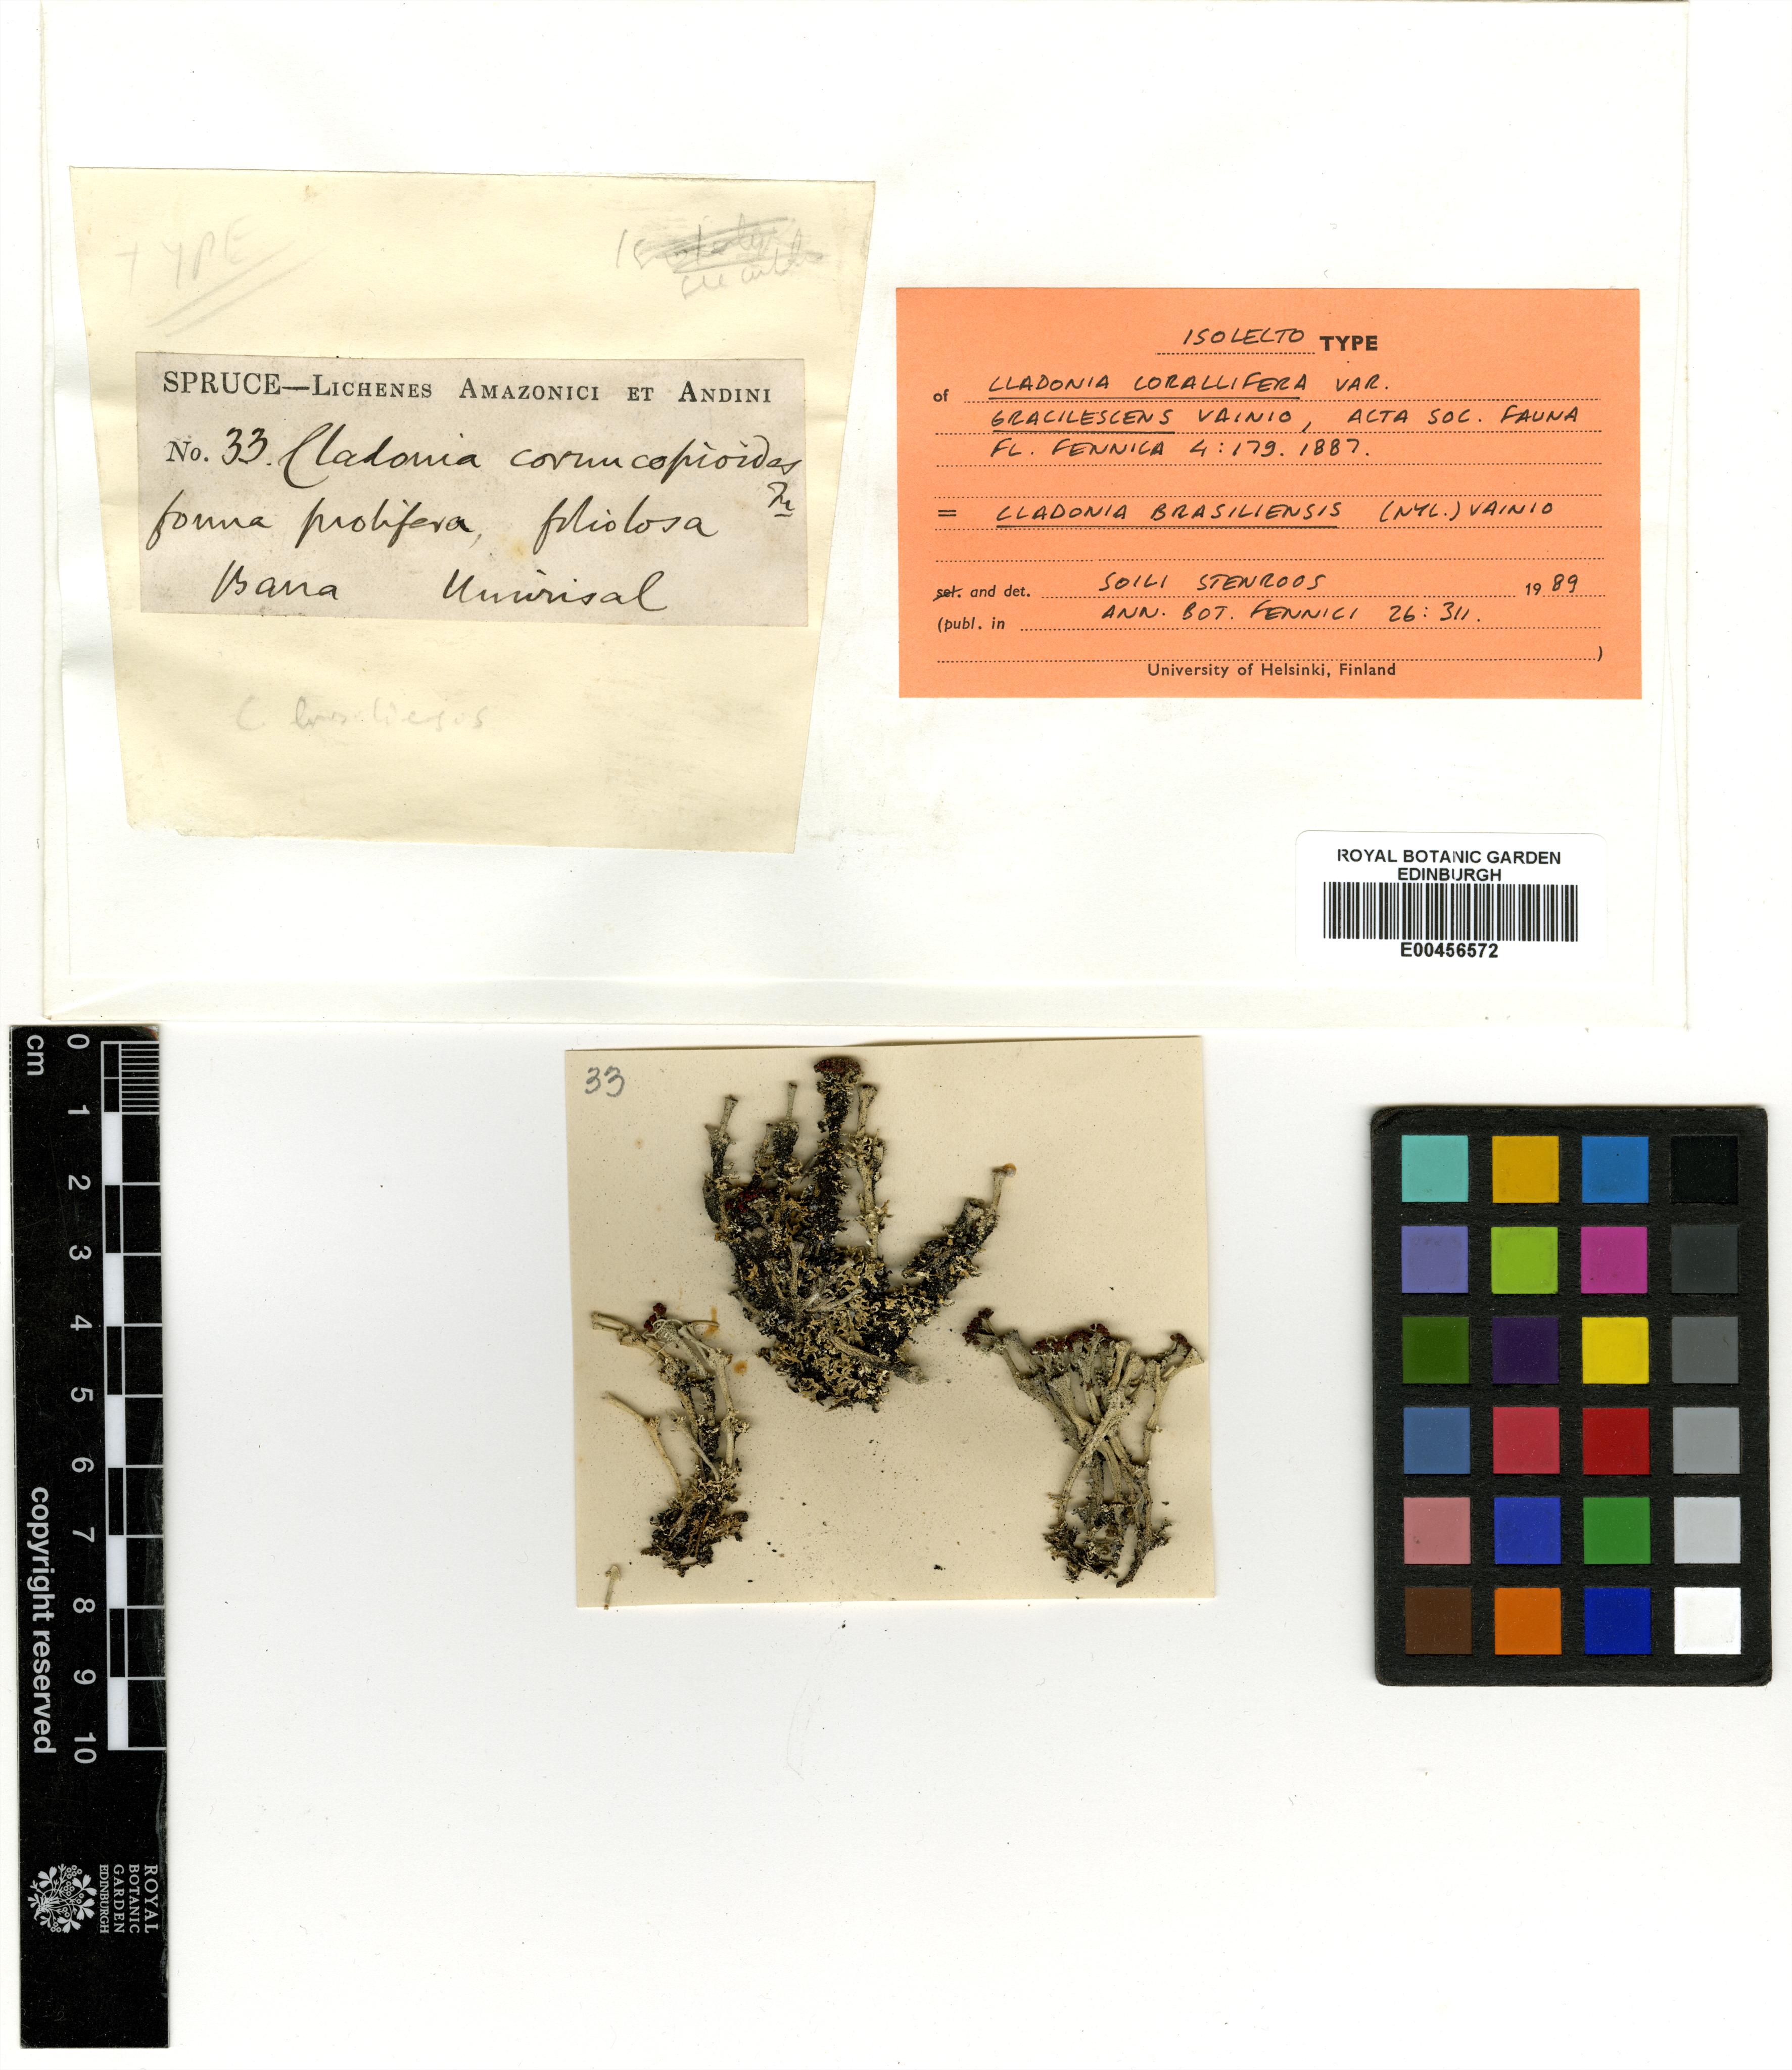 TYPE
SPRUCE—LICHENES AMAZONICI ET ANDINI
No. 33. Cladonia cornucopioides
Fr
forma prolifera, foliolosa
Barra
C. brasiliensis
ISOLECTO TYPE
of CLADONIA CORALLIFERA VAR.
GRACILESCENS VAINIO, ACTA SOC. FAUNA
FL. FENNICA 4:179. 1887.
= CLADONIA BRASILIENSIS (NYL.) VAINIO
sel. and det. SOILI STENROOS 1989
(publ. in ANN. BOT. FENNICI 26:311.
)
University of Helsinki, Finland
ROYAL BOTANIC GARDEN
EDINBURGH
E00456572
33
cm
0 1 2 3 4 5 6 7 8 9 10
copyright reserved
ROYAL
BOTANIC
GARDEN
EDINBURGH